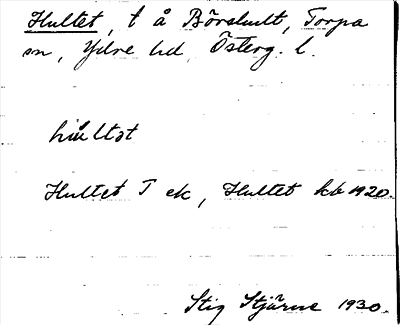 Hultet, t å Börshult, Torpa
sn, Ydre hd, Österg. l.
hultət
Hultet T ek, Hultet kb 1920.
Stig Stjärne 1930.